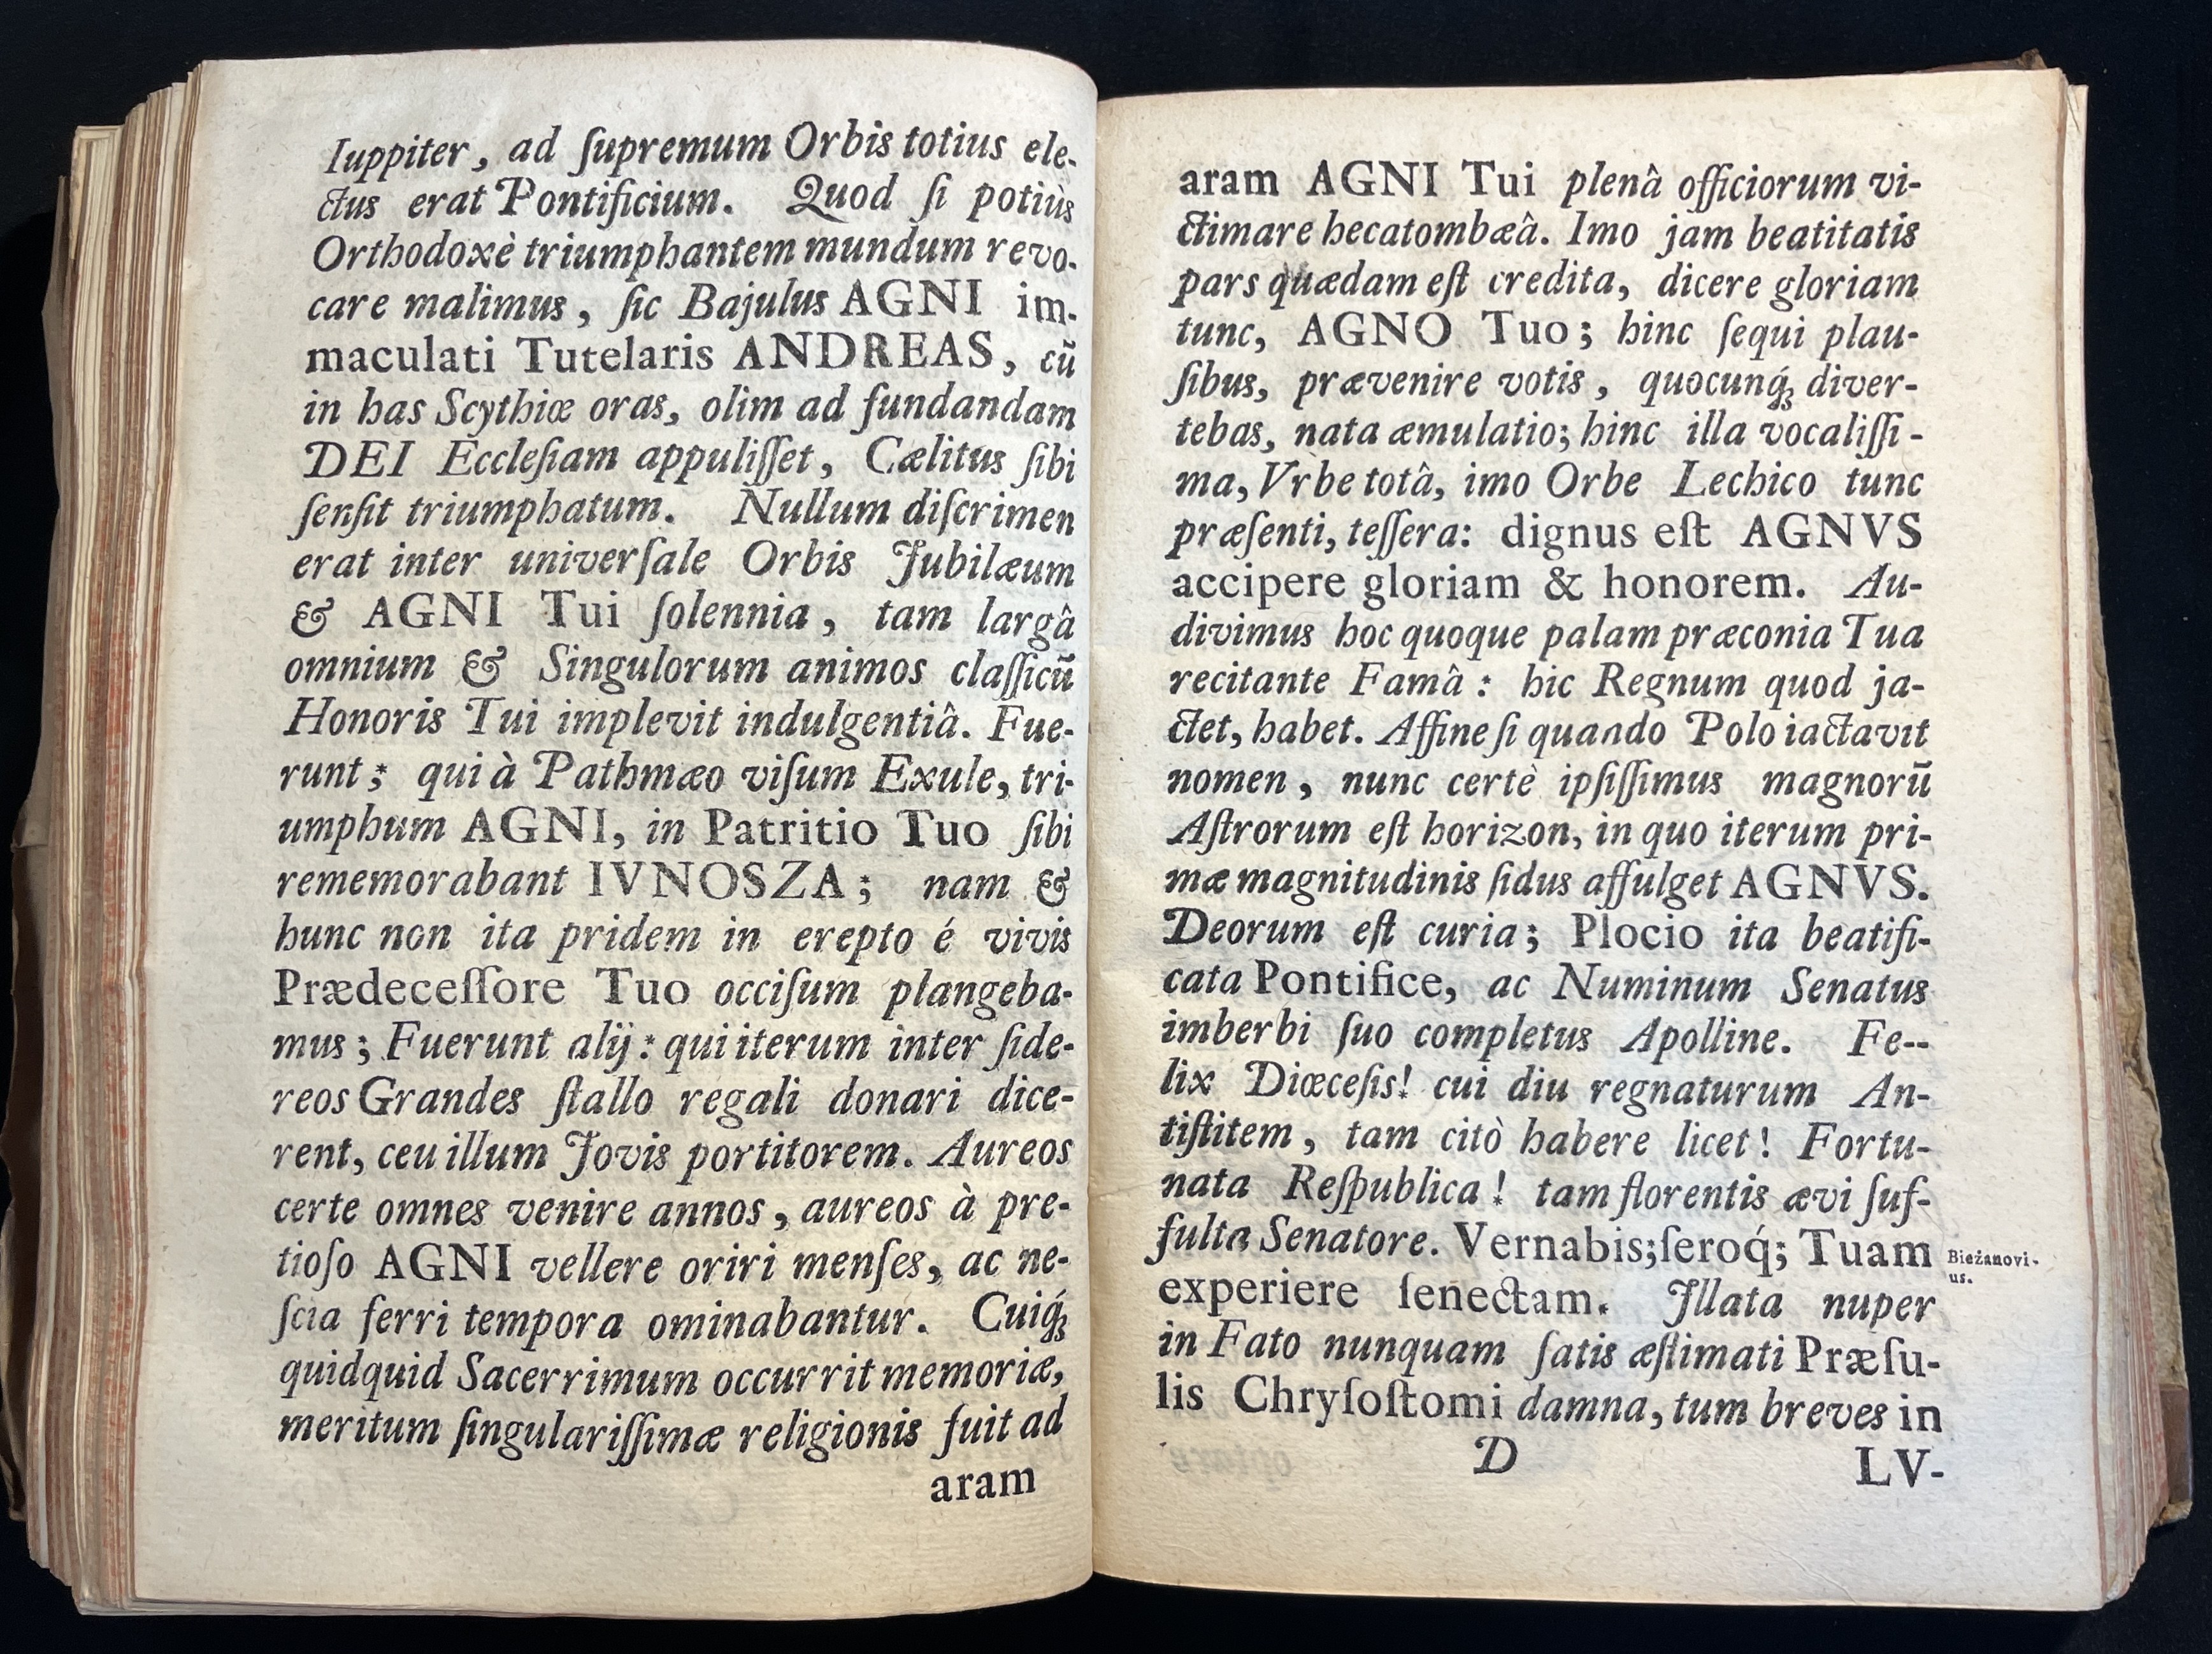 Iuppiter, ad ſupremum Orbis totius ele-
ctus erat Pontificium. Quod ſi potiùs
Orthodoxè triumphantem mundum revo-
care malimus, ſic Bajulus AGNI im-
maculati Tutelaris ANDREAS, cū
in has Scythiæ oras, olim ad fundandam
DEI Eccleſiam appuliſſet, Cælitus ſibi
ſenſit triumphatum. Nullum diſcrimen
erat inter univerſale Orbis Jubilæum
& AGNI Tui ſolennia, tam largâ
omnium & Singulorum animos claſſicū
Honoris Tui implevit indulgentiâ. Fue-
runt; qui à Pathmæo viſum Exule, tri-
umphum AGNI, in Patritio Tuo ſibi
rememorabant IVNOSZA; nam &
hunc non ita pridem in erepto é vivis
Prædeceſſore Tuo occiſum plangeba-
mus; Fuerunt alij: qui iterum inter ſide-
reos Grandes ſtallo regali donari dice-
rent, ceu illum Jovis portitorem. Aureos
certe omnes venire annos, aureos à pre-
tioſo AGNI vellere oriri menſes, ac ne-
ſcia ferri tempora ominabantur. Cuiq́;
quidquid Sacerrimum occurrit memoriæ,
meritum ſingulariſſimæ religionis fuit ad
aram
aram AGNI Tui plenâ officiorum vi-
ctimare hecatombæâ. Imo jam beatitatis
pars quædam eſt credita, dicere gloriam
tunc, AGNO Tuo; hinc ſequi plau-
ſibus, prævenire votis, quocunq́; diver-
tebas, nata æmulatio; hinc illa vocaliſſi-
ma, Vrbe totâ, imo Orbe Lechico tunc
præſenti, teſſera: dignus eſt AGNVS
accipere gloriam & honorem. Au-
divimus hoc quoque palam præconia Tua
recitante Famâ: hic Regnum quod ja-
ctet, habet. Affine ſi quando Polo iactavit
nomen, nunc certè ipſiſſimus magnorū
Aſtrorum eſt horizon, in quo iterum pri-
mæ magnitudinis ſidus affulget AGNVS.
Deorum eſt curia; Plocio ita beatifi-
cata Pontifice, ac Numinum Senatus
imberbi ſuo completus Apolline. Fe--
lix Diœceſis! cui diu regnaturum An-
tiſtitem, tam citò habere licet! Fortu-
nata Reſpublica! tam florentis ævi ſuf-
fulta Senatore. Vernabis; ſeroq́; Tuam
Bieżanovi-
us.
experiere ſenectam. Jllata nuper
in Fato nunquam ſatis æſtimati Præſu-
lis Chryſoſtomi damna, tum breves in
D LV-